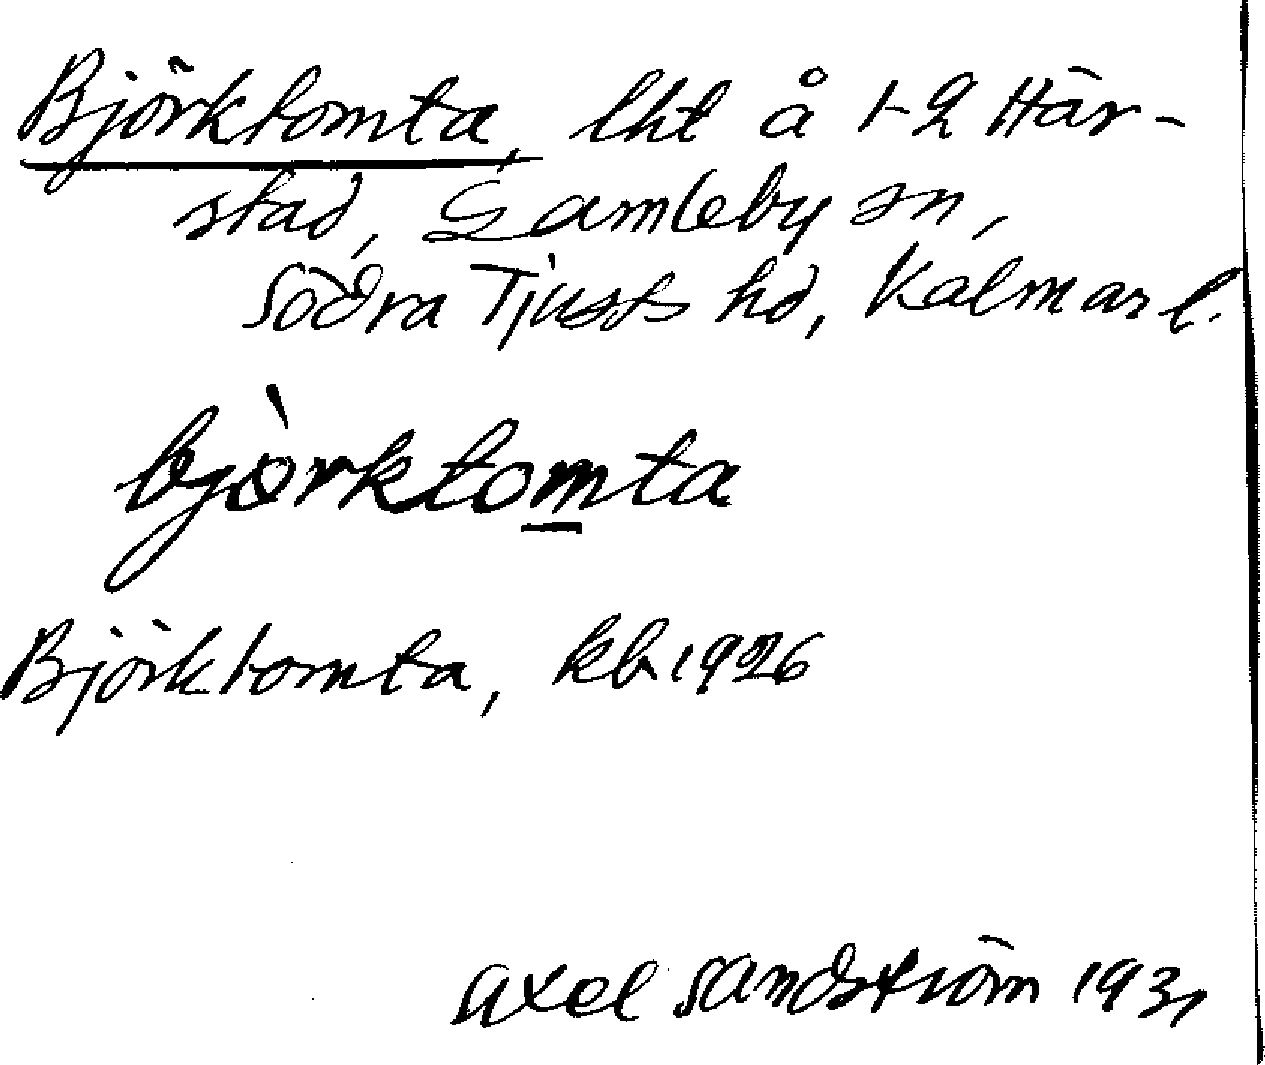 Björktomta, lht å 1-2 Här-
stad, Gamleby sn,
Södra Tjusts hd, Kalmar l.
bjòrktomta
Björktomta, kb 1926
Axel Sandström 1931